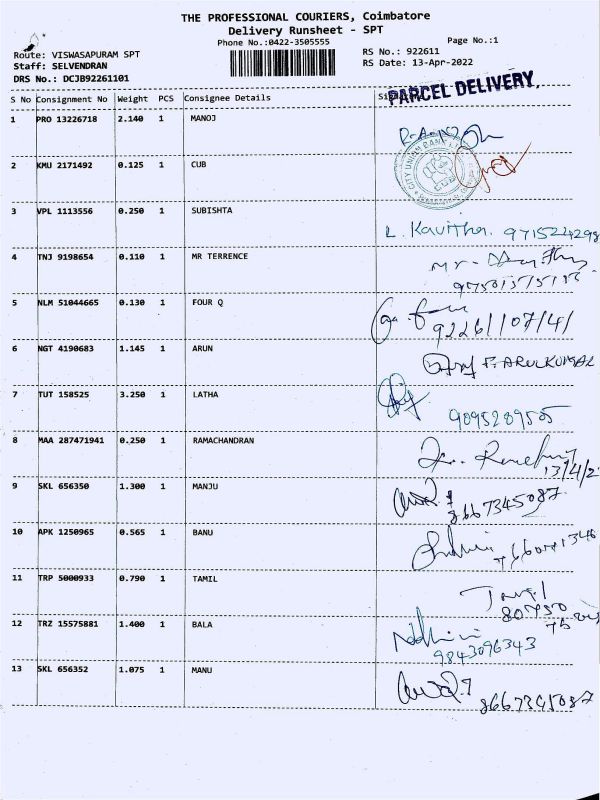 THE PROFESSIONAL COURIERS, Coimbatore
Delivery Runsheet - SPT
Phone No.:0422-3505555
Page No.:1
Route: VISWASAPURAM SPT
RS No.: 922611
Staff: SELVENDRAN
RS Date: 13-Apr-2022
DRS No.: DCJB92261101
PARCEL DELIVERY.
S No Consignment No Weight PCS Consignee Details
1 PRO 13226718 2.140 1 MANOJ
2 KMU 2171492 0.125 1 CUB
CITY UNION BANK LTD
3 VPL 1113556 0.250 1 SUBISHTA
L. Kavitha. 9715224298
4 TNJ 9198654 0.110 1 MR TERRENCE
Mr.
5 NLM 51044665 0.130 1 FOUR Q
6 NGT 4190683 1.145 1 ARUN
P. ARULKUMAR
7 TUT 158525 3.250 1 LATHA
9095209505
8 MAA 287471941 0.250 1 RAMACHANDRAN
13/4/2
9 SKL 656350 1.300 1 MANJU
8667345087
10 APK 1250965 0.565 1 BANU
11 TRP 5000933 0.790 1 TAMIL
12 TRZ 15575881 1.400 1 BALA
9843096343
13 SKL 656352 1.075 1 MANU
8667345087